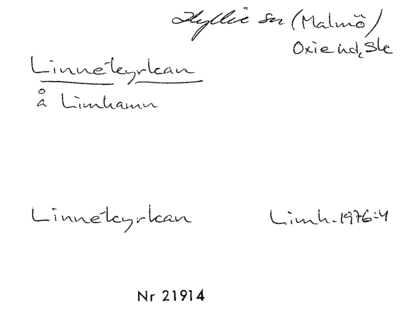 Hyllie sn (Malmö)
Oxie hd, Sk
Linnékyrkan
å Limhamn
Linnékyrkan Limh. 1976:4
Nr 21914